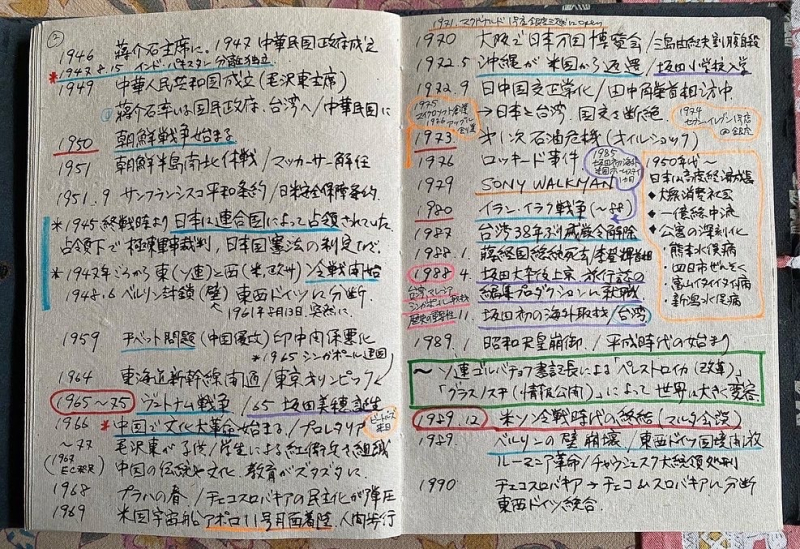 ②
1946 蔣介石主席に。1947 中華民国政府成立
*1947.8.15 インド・パキスタン分離独立
1949 中華人民共和国成立（毛沢東主席）
蔣介石率いる国民政府、台湾へ/中華民国に
1950 朝鮮戦争始まる
1951 朝鮮半島南北休戦/マッカーサー解任
1951.9 サンフランシスコ平和条約/日米安全保障条約
*1945 終戦時より日本は連合国によって占領されていた
占領下で極東軍事裁判、日本国憲法の制定など
*1947年ごろから東（ソ連）と西（米、欧州）冷戦開始
1948.6 ベルリン封鎖（壁）東西ドイツに分断
1961年8月13日、突然に
1959 チベット問題（中国侵攻）印中関係悪化
*1965 シンガポール建国
1964 東海道新幹線開通/東京オリンピック
1965〜75 ヴェトナム戦争/65 坂田美穂誕生
1966 *中国で文化大革命始まる/プロレタリア
ビートルズ来日
〜77 毛沢東が子供/学生による紅衛兵を組織
(1967 EC発足)
中国の伝統や文化、教育がズタズタに
1968 プラハの春/チェコスロバキアの民主化が弾圧
1969 米国宇宙船アポロ11号月面着陸、人間歩行
1971. マクドナルド1号店銀座三越にopen
1970 大阪で日本万国博覧会/三島由紀夫割腹自殺
1972.5 沖縄が米国から返還/坂田小学校入学
1972.9 日中国交正常化/田中角栄首相訪中
→日本と台湾、国交を断絶
1975 マイクロソフト創業
1976 アップル創業
1974 セブンイレブン1号店
1973 第1次石油危機（オイルショック）
1976 ロッキード事件
1985 坂田初海外
1979 SONY WALKMAN
1980 イラン・イラク戦争（〜88）
1987 台湾38年ぶり戒厳令解除
1988.1. 蔣経国総統死去/李登輝首相
1988 4. 坂田大卒後上京 旅行誌の
編集プロダクションに就職
台湾、マレーシア
シンガポール取材
歴史の重要性
11. 坂田初の海外取材/台湾
1950年代〜
日本は高度経済成長
◆大衆消費社会
◆一億総中流
◆公害の深刻化
・熊本水俣病
・四日市ぜんそく
・富山イタイイタイ病
・新潟水俣病
1989.1 昭和天皇崩御/平成時代の始まり
〜ソ連ゴルバチョフ書記長による「ペレストロイカ（改革）」
「グラスノスチ（情報公開）」によって世界は大きく変容
1989.12 米ソ冷戦時代の終結（マルタ会談）
1989. ベルリンの壁崩壊/東西ドイツ国境開放
ルーマニア革命/チャウシェスク大統領処刑
1990 チェコスロバキア→チェコとスロバキアに分断
東西ドイツ統合